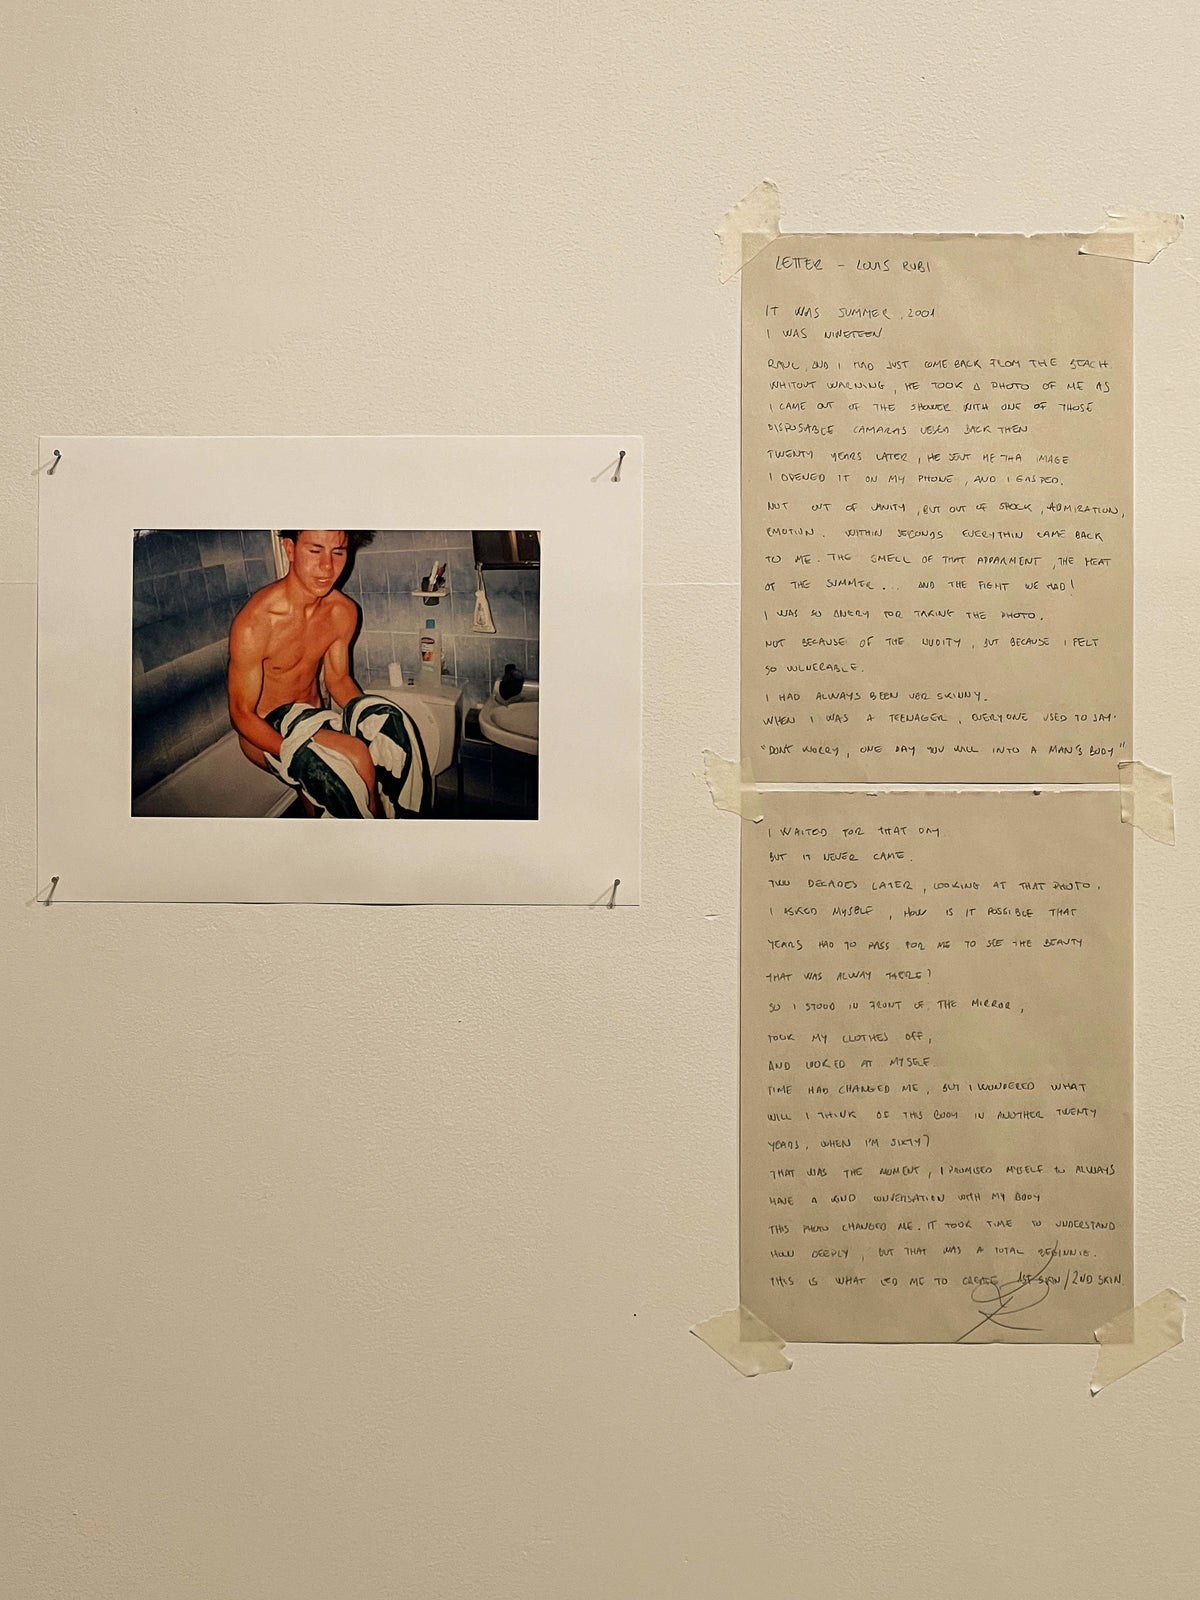 LETTER - LOUIS RUBI
IT WAS SUMMER, 2001
I WAS NINETEEN
RAUL, AND I HAD JUST COME BACK FROM THE BEACH.
WHITOUT WARNING, HE TOOK A PHOTO OF ME AS
I CAME OUT OF THE SHOWER WITH ONE OF THOSE
DISPOSABLE CAMARAS BACK THEN
TWENTY YEARS LATER, HE SENT ME THA IMAGE
I OPENED IT ON MY PHONE, AND I GASPED.
NOT OUT OF VANITY, BUT OUT OF SHOCK, ADMIRATION,
EMOTION. WITHIN SECONDS EVERYTHIN CAME BACK
TO ME. THE SMELL OF THAT APPARMENT, THE HEAT
OF THE SUMMER... AND THE FIGHT WE HAD!
I WAS SO ANGRY FOR TAKING THE PHOTO.
NOT BECAUSE OF THE NUDITY, BUT BECAUSE I FELT
SO VULNERABLE.
I HAD ALWAYS BEEN VER SKINNY.
WHEN I WAS A TEENAGER, EVERYONE USED TO SAY.
"DONT WORRY, ONE DAY YOU WILL INTO A MAN'S BODY"
I WAITED FOR THAT DAY
BUT IT NEVER CAME.
TWO DECADES LATER, LOOKING AT THAT PHOTO.
I ASKED MYSELF, HOW IS IT POSSIBLE THAT
YEARS HAD TO PASS FOR ME TO SEE THE BEAUTY
THAT WAS ALWAY THERE?
SO I STOOD IN FRONT OF THE MIRROR,
TOOK MY CLOTHES OFF,
AND LOOKED AT MYSELF.
TIME HAD CHANGED ME, BUT I WONDERED WHAT
WILL I THINK OF THIS BODY IN ANOTHER TWENTY
YEARS, WHEN I'M SIXTY?
THAT WAS THE MOMENT, I PROMISED MYSELF TO ALWAYS
HAVE A KIND CONVERSATION WITH MY BODY
THIS PHOTO CHANGED ME. IT TOOK TIME TO UNDERSTAND
HOW DEEPLY, BUT THAT WAS A TOTAL BEGINNIG.
THIS IS WHAT LED ME TO CREATE 1ST SKIN / 2ND SKIN.